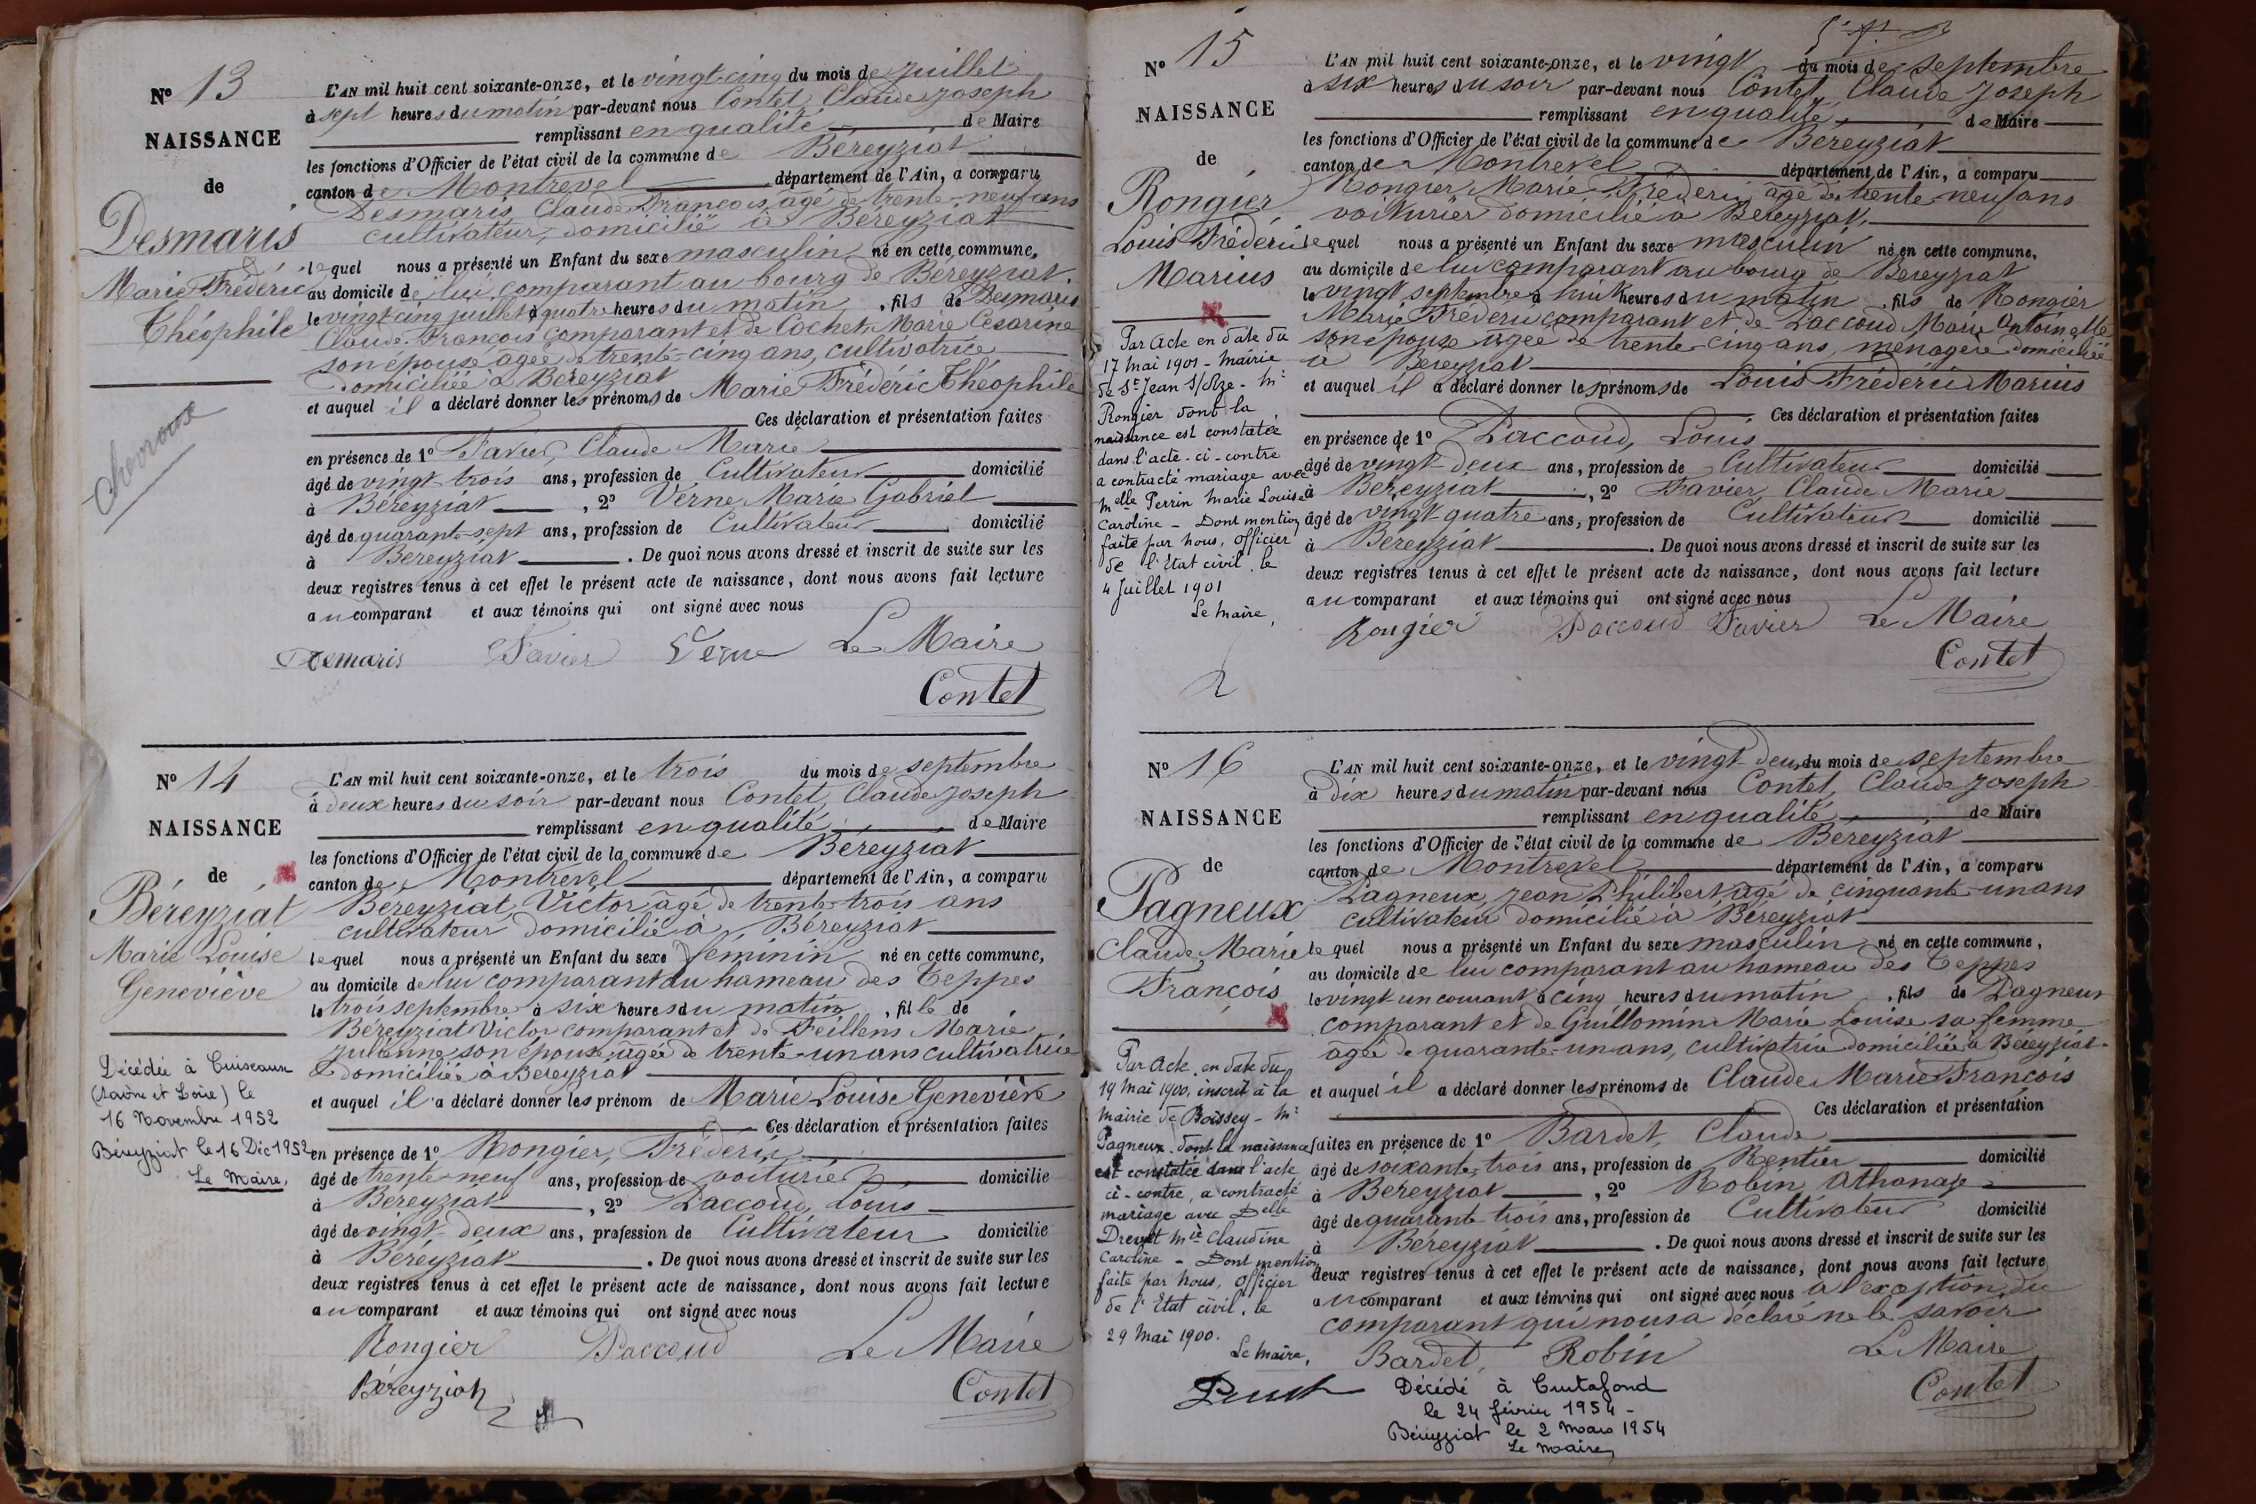 N° 13
NAISSANCE
de
Desmaris
Marie Frédéric
Théophile
Chevroux
L'AN mil huit cent soixante-onze, et le vingt-cinq du mois de Juillet
à sept heures du matin par-devant nous Contet, Claude Joseph
remplissant en qualité de Maire
les fonctions d'Officier de l'état civil de la commune de Béreyziat
canton de Montrevel département de l'Ain, a comparu
Desmaris, Claude François, âgé de trente-neuf ans
cultivateur, domicilié à Béreyziat
lequel nous a présenté un Enfant du sexe masculin né en cette commune,
au domicile de lui comparant au bourg de Béreyziat
le vingt cinq juillet à quatre heures du matin, fils de Desmaris
Claude François comparant et de Cochet Marie Césarine
son épouse âgée de trente-cinq ans, cultivatrice
domiciliée à Béreyziat
et auquel il a déclaré donner les prénoms de Marie Frédéric Théophile
Ces déclaration et présentation faites
en présence de 1° Favier, Claude Marie
âgé de vingt-trois ans, profession de Cultivateur domicilié
à Béreyziat, 2° Verne Marie Gabriel
âgé de quarante-sept ans, profession de Cultivateur domicilié
à Béreyziat. De quoi nous avons dressé et inscrit de suite sur les
deux registres tenus à cet effet le présent acte de naissance, dont nous avons fait lecture
au comparant et aux témoins qui ont signé avec nous
Demaris Favier Verne Le Maire
Contet
N° 14
NAISSANCE
de
Béreyziat
Marie Louise
Geneviève
Décédée à Cuiseaux
(Saône et Loire) le
16 Novembre 1952
Béreyziat le 16 Déc 1952
Le Maire,
L'AN mil huit cent soixante-onze, et le trois du mois de septembre
à deux heures du soir par-devant nous Contet, Claude Joseph
remplissant en qualité de Maire
les fonctions d'Officier de l'état civil de la commune de Béreyziat
canton de Montrevel département de l'Ain, a comparu
Béreyziat, Victor, âgé de trente-trois ans
cultivateur domicilié à Béreyziat
lequel nous a présenté un Enfant du sexe féminin né en cette commune,
au domicile de lui comparant au hameau des Teppes
le trois septembre à six heures du matin, fille de
Béreyziat Victor comparant et de Feillens Marie
Julienne son épouse, âgée de trente-un ans cultivatrice
domiciliée à Béreyziat
et auquel il a déclaré donner les prénom de Marie Louise Geneviève
Ces déclaration et présentation faites
en présence de 1° Rongier, Fréderic
âgé de trente-neuf ans, profession de voiturier domicilié
à Béreyziat, 2° Paccoud, Louis
âgé de vingt-deux ans, profession de Cultivateur domicilié
à Béreyziat. De quoi nous avons dressé et inscrit de suite sur les
deux registres tenus à cet effet le présent acte de naissance, dont nous avons fait lecture
au comparant et aux témoins qui ont signé avec nous
Rongier Paccoud Le Maire
Béreyziat Contet
N° 15
NAISSANCE
de
Rongier
Louis Fréderic
Marius
Par Acte en date du
17 mai 1901 - Mairie
de St Jean s/Rze - Mr
Rongier dont la
naissance est constatée
dans l'acte-ci-contre
a contracté mariage avec
Melle Perrin Marie Louise
Caroline - Dont mention
faite par nous, Officier
de l'État civil, le
4 Juillet 1901
Le Maire,
2
L'AN mil huit cent soixante-onze, et le vingt du mois de septembre
à six heures du soir par-devant nous Contet, Claude Joseph
remplissant en qualité de Maire
les fonctions d'Officier de l'état civil de la commune de Béreyziat
canton de Montrevel département de l'Ain, a comparu
Rongier, Marie Fréderic, âgé de trente-neuf ans
voiturier domicilié à Béreyziat,
lequel nous a présenté un Enfant du sexe masculin né en cette commune,
au domicile de lui comparant au bourg de Béreyziat
le vingt septembre à huit heures du matin, fils de Rongier
Marie Fréderic comparant et de Paccoud Marie Antoinette
son épouse âgée de trente-cinq ans, ménagère domiciliée
à Béreyziat
et auquel il a déclaré donner les prénoms de Louis Fréderic Marius
Ces déclaration et présentation faites
en présence de 1° Paccoud, Louis
âgé de vingt-deux ans, profession de Cultivateur domicilié
à Béreyziat, 2° Favier, Claude Marie
âgé de vingt-quatre ans, profession de Cultivateur domicilié
à Béreyziat. De quoi nous avons dressé et inscrit de suite sur les
deux registres tenus à cet effet le présent acte de naissance, dont nous avons fait lecture
au comparant et aux témoins qui ont signé avec nous
Rongier Paccoud Favier Le Maire
Contet
N° 16
NAISSANCE
de
Pagneux
Claude Marie
François
Par Acte, en date du
19 Mai 1900, inscrit à la
mairie de Boissey - Mr
Pagneux dont la naissance
est constatée dans l'acte
ci-contre, a contracté
mariage avec Delle
Drevet Mie Claudine
Caroline - Dont mention
faite par nous, Officier
de l'État civil, le
29 Mai 1900.
Le Maire,
L'AN mil huit cent soixante-onze, et le vingt-deux du mois de septembre
à dix heures du matin par-devant nous Contet, Claude Joseph
remplissant en qualité de Maire
les fonctions d'Officier de l'état civil de la commune de Béreyziat
canton de Montrevel département de l'Ain, a comparu
Pagneux, Jean Philibert, âgé de cinquante-un ans
cultivateur domicilié à Béreyziat
lequel nous a présenté un Enfant du sexe masculin né en cette commune,
au domicile de lui comparant au hameau des Teppes
le vingt-un courant à cinq heures du matin, fils de Pagneux
comparant et de Guillomin Marie Louise sa femme
âgée de quarante-un ans, cultivatrice domiciliée à Béreyziat
et auquel il a déclaré donner les prénoms de Claude Marie François
Ces déclaration et présentation
faites en présence de 1° Bardet, Claude
âgé de soixante-trois ans, profession de Rentier domicilié
à Béreyziat, 2° Robin, Athanase
âgé de quarante-trois ans, profession de Cultivateur domicilié
à Béreyziat. De quoi nous avons dressé et inscrit de suite sur les
deux registres tenus à cet effet le présent acte de naissance, dont nous avons fait lecture
au comparant et aux témoins qui ont signé avec nous à l'exception du
comparant qui nous a déclaré ne le savoir
Bardet, Robin Le Maire
Contet
Décédé à Curtafond
le 24 février 1954 -
Béreyziat le 2 Mars 1954
Le Maire,